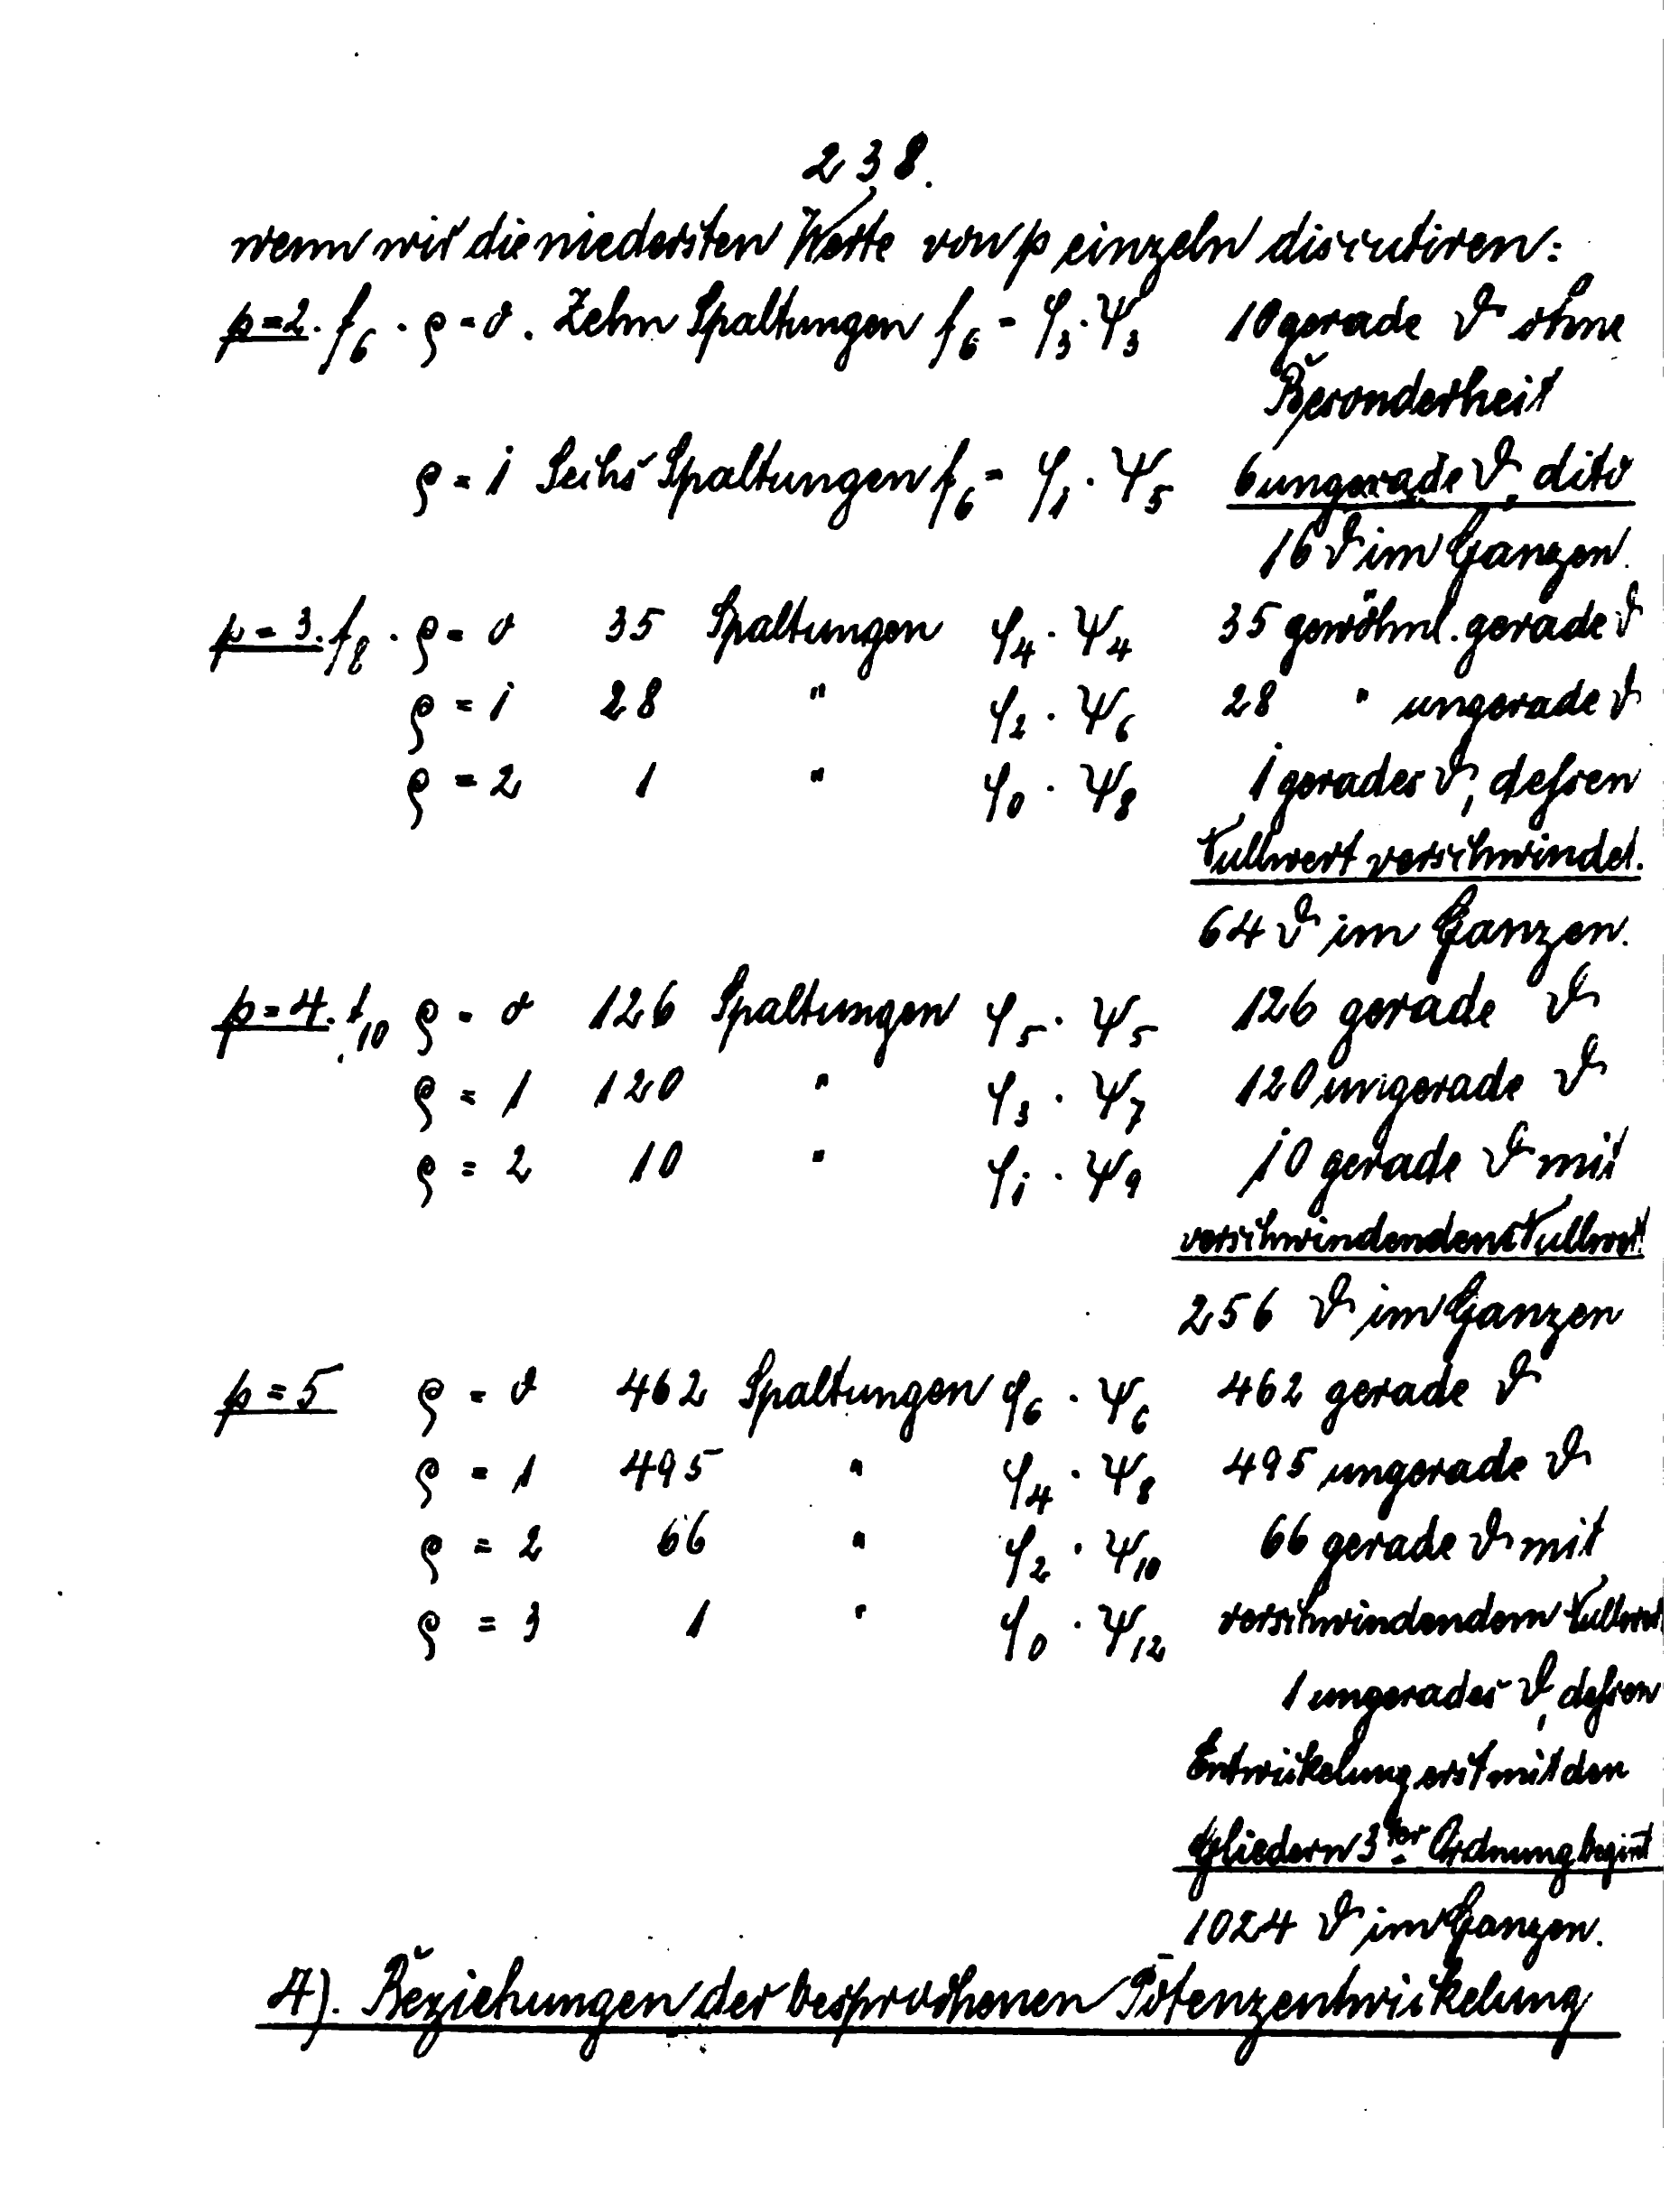 238.
wenn wir die niedersten Werte von p einzeln discutiren:
p=2. f₆. ρ=0. Zehn Spaltungen f₆ = φ₃·ψ₃ 10 gerade ϑ ohne
Besonderheit
ρ=1 Sechs Spaltungen f₆ = φ₁·ψ₅ 6 ungerade ϑ, dito
16 ϑ im Ganzen.
p=3. f₈. ρ=0 35 Spaltungen φ₄·ψ₄ 35 gewöhnl. gerade ϑ
ρ=1 28 " φ₂·ψ₆ 28 " ungerade ϑ
ρ=2 1 " φ₀·ψ₈ 1 gerades ϑ, dessen
Nullwert verschwindet.
64 ϑ im Ganzen.
p=4. f₁₀ ρ=0 126 Spaltungen φ₅·ψ₅ 126 gerade ϑ
ρ=1 120 " φ₃·ψ₇ 120 ungerade ϑ
ρ=2 10 " φ₁·ψ₉ 10 gerade ϑ mit
verschwindendem Nullwert
256 ϑ im Ganzen
p=5 ρ=0 462 Spaltungen φ₆·ψ₆ 462 gerade ϑ
ρ=1 495 " φ₄·ψ₈ 495 ungerade ϑ
ρ=2 66 " φ₂·ψ₁₀ 66 gerade ϑ mit
ρ=3 1 " φ₀·ψ₁₂ verschwindendem Nullwert
1 ungerades ϑ, dessen
Entwickelung erst mit den
Gliedern 3ter Ordnung begint
1024 ϑ im Ganzen.
A). Beziehungen der besprochenen Potenzentwickelung